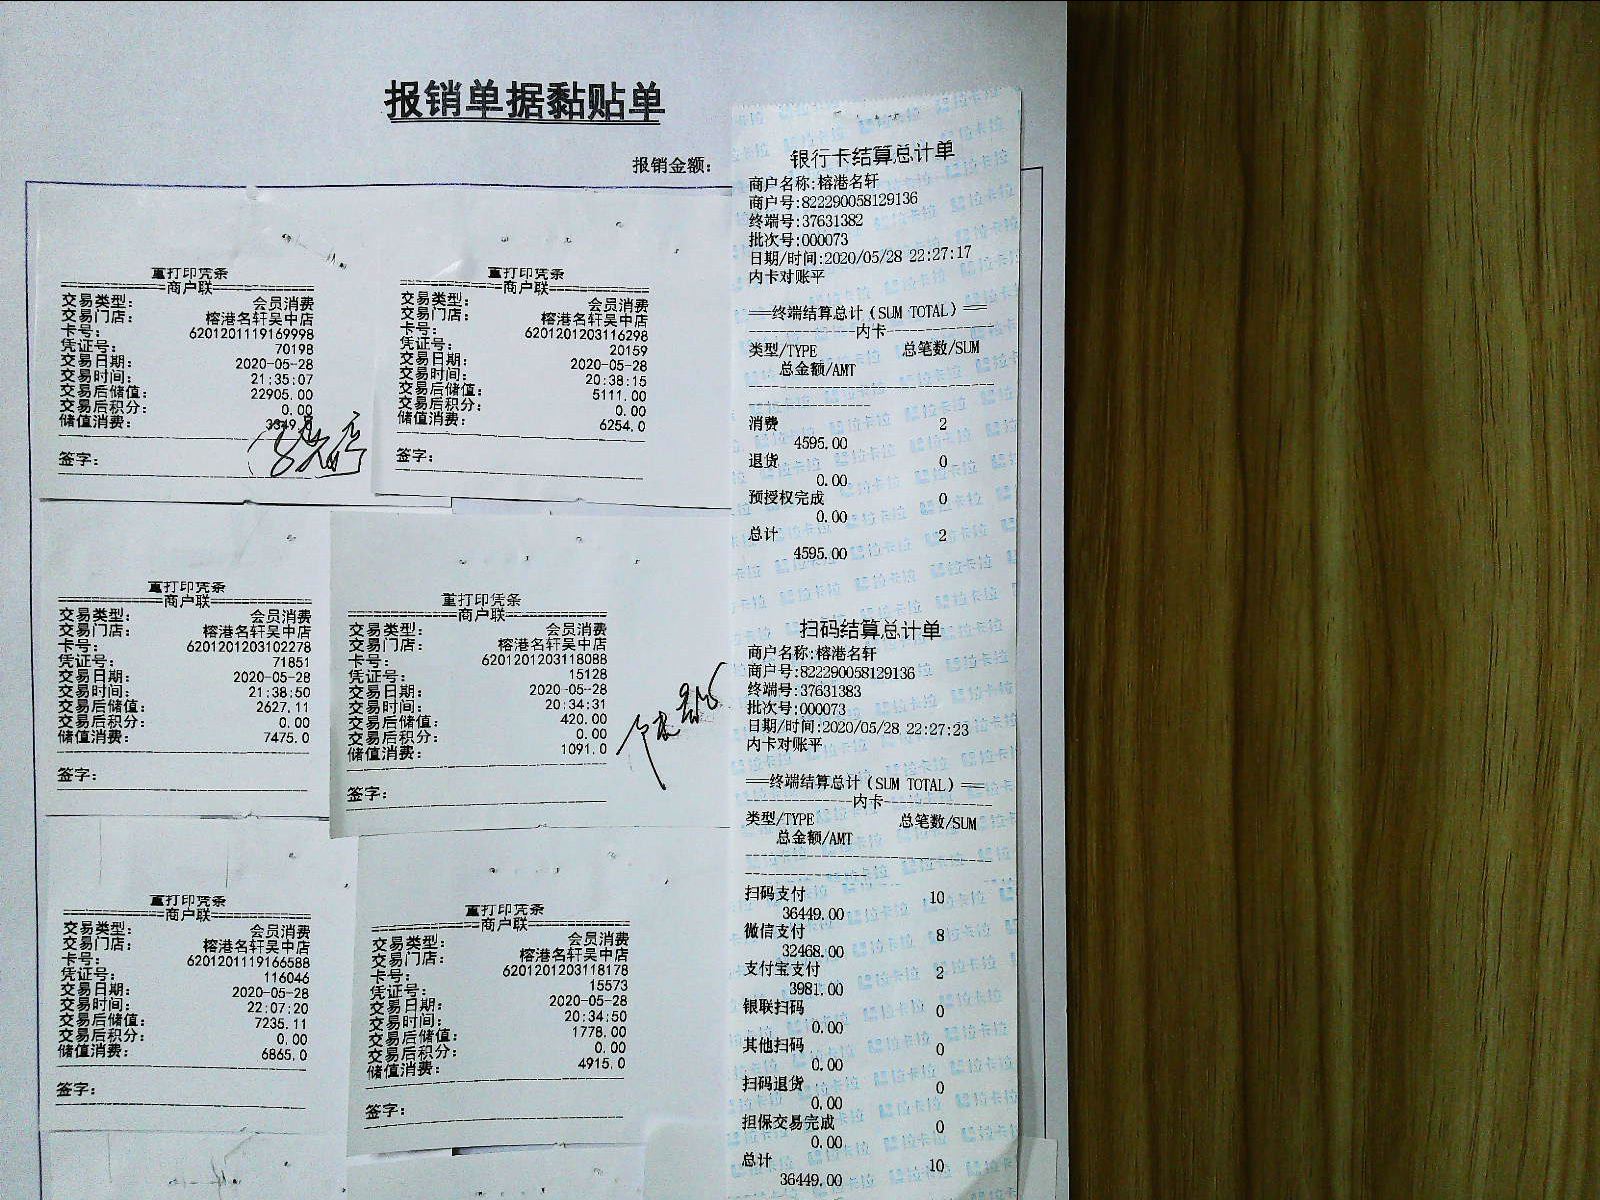 报销单据黏贴单
报销金额:
重打印凭条
商户联
交易类型: 会员消费
交易门店: 榕港名轩吴中店
卡号: 6201201119169998
凭证号: 70198
交易日期: 2020-05-28
交易时间: 21:35:07
交易后储值: 22905.00
交易后积分: 0.00
储值消费: 3349
签字:
重打印凭条
商户联
交易类型: 会员消费
交易门店: 榕港名轩吴中店
卡号: 6201201203116298
凭证号: 20159
交易日期: 2020-05-28
交易时间: 20:38:15
交易后储值: 5111.00
交易后积分: 0.00
储值消费: 6254.0
签字:
重打印凭条
商户联
交易类型: 会员消费
交易门店: 榕港名轩吴中店
卡号: 6201201203102278
凭证号: 71851
交易日期: 2020-05-28
交易时间: 21:38:50
交易后储值: 2627.11
交易后积分: 0.00
储值消费: 7475.0
签字:
重打印凭条
商户联
交易类型: 会员消费
交易门店: 榕港名轩吴中店
卡号: 6201201203118088
凭证号: 15128
交易日期: 2020-05-28
交易时间: 20:34:31
交易后储值: 420.00
交易后积分: 0.00
储值消费: 1091.0
签字:
重打印凭条
商户联
交易类型: 会员消费
交易门店: 榕港名轩吴中店
卡号: 6201201119166588
凭证号: 116046
交易日期: 2020-05-28
交易时间: 22:07:20
交易后储值: 7235.11
交易后积分: 0.00
储值消费: 6865.0
签字:
重打印凭条
商户联
交易类型: 会员消费
交易门店: 榕港名轩吴中店
卡号: 6201201203118178
凭证号: 15573
交易日期: 2020-05-28
交易时间: 20:34:50
交易后储值: 1778.00
交易后积分: 0.00
储值消费: 4915.0
签字:
银行卡结算总计单
商户名称:榕港名轩
商户号:822290058129136
终端号:37631382
批次号:000073
日期/时间:2020/05/28 22:27:17
内卡对账平
==终端结算总计(SUM TOTAL)==
内卡
类型/TYPE 总笔数/SUM
总金额/AMT
消费 2
4595.00
退货 0
0.00
预授权完成 0
0.00
总计 2
4595.00
扫码结算总计单
商户名称:榕港名轩
商户号:822290058129136
终端号:37631383
批次号:000073
日期/时间:2020/05/28 22:27:23
内卡对账平
==终端结算总计(SUM TOTAL)==
内卡
类型/TYPE 总笔数/SUM
总金额/AMT
扫码支付 10
36449.00
微信支付 8
32468.00
支付宝支付 2
3981.00
银联扫码 0
0.00
其他扫码 0
0.00
扫码退货 0
0.00
担保交易完成 0
0.00
总计 10
36449.00